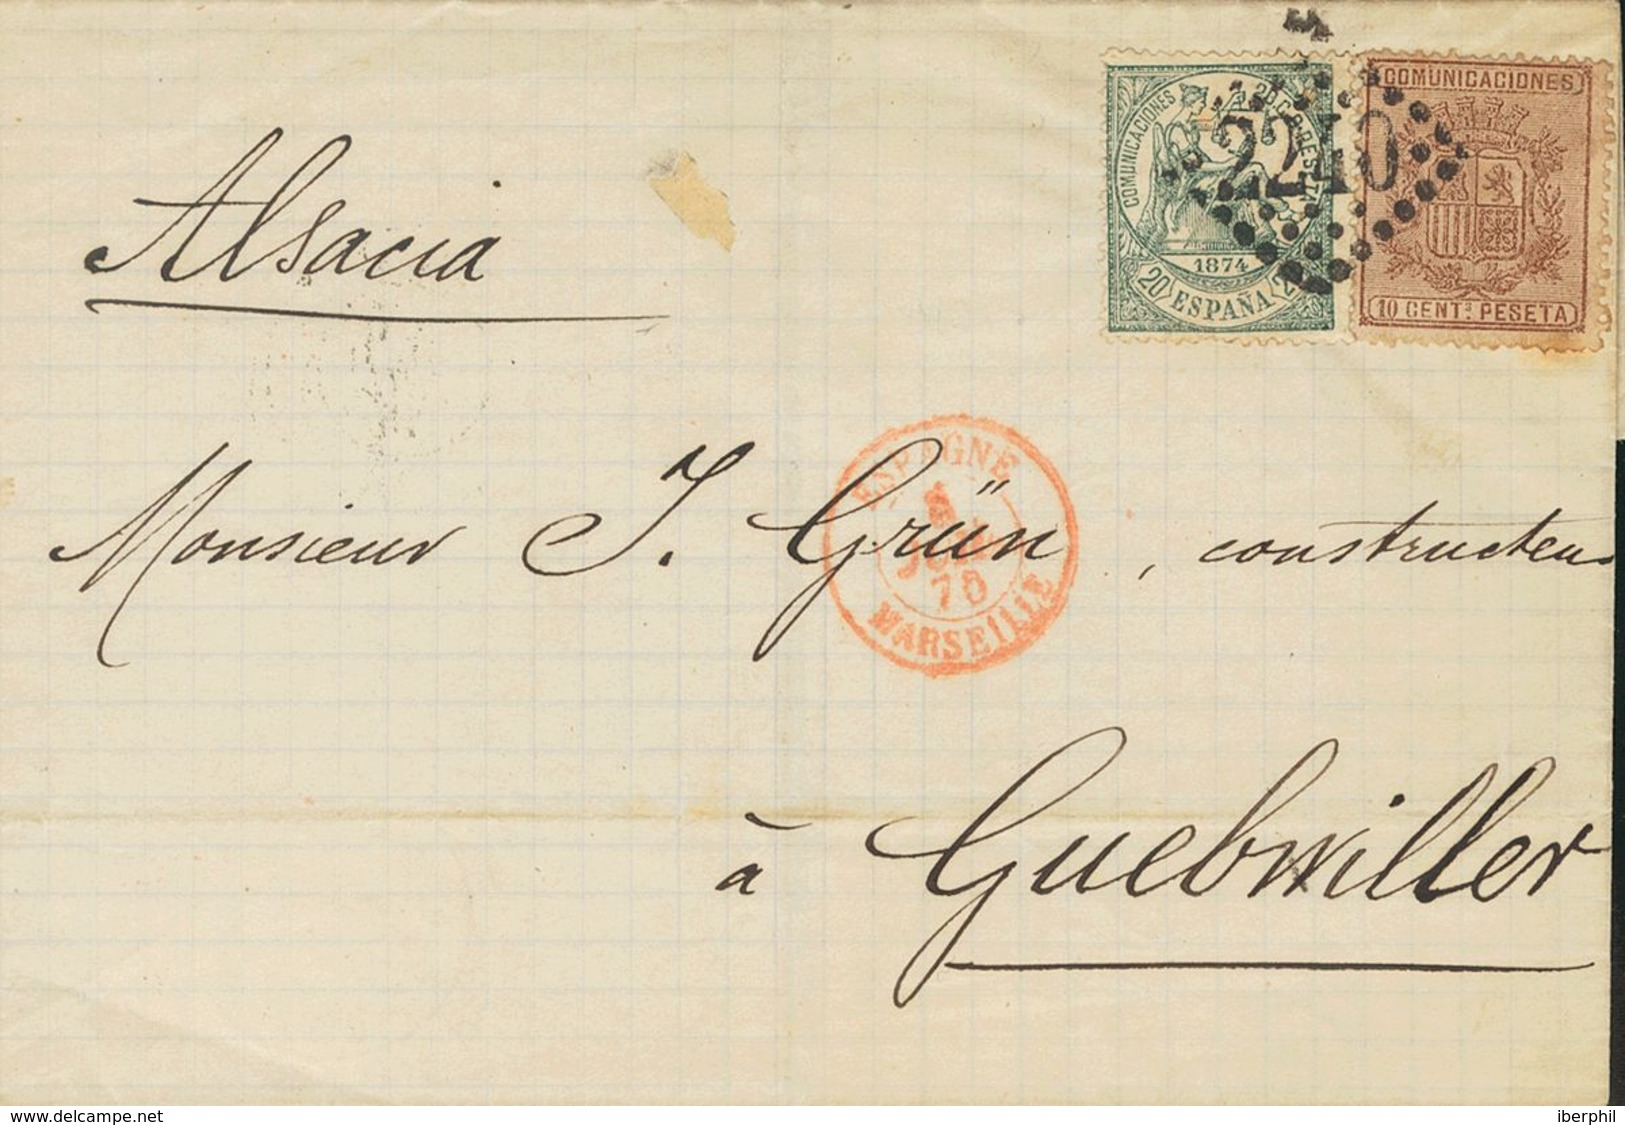 COMUNICACIONES
20 C. DE PESETA
1874
20 ESPAÑA 20
COMUNICACIONES
10 CENT.ˢ PESETA
2240
Alsacia
ESPAGNE
JUIN
75
MARSEILLE
Monsieur J. Grün, constructeur
à Guebwiller
www.delcampe.net
iberphil